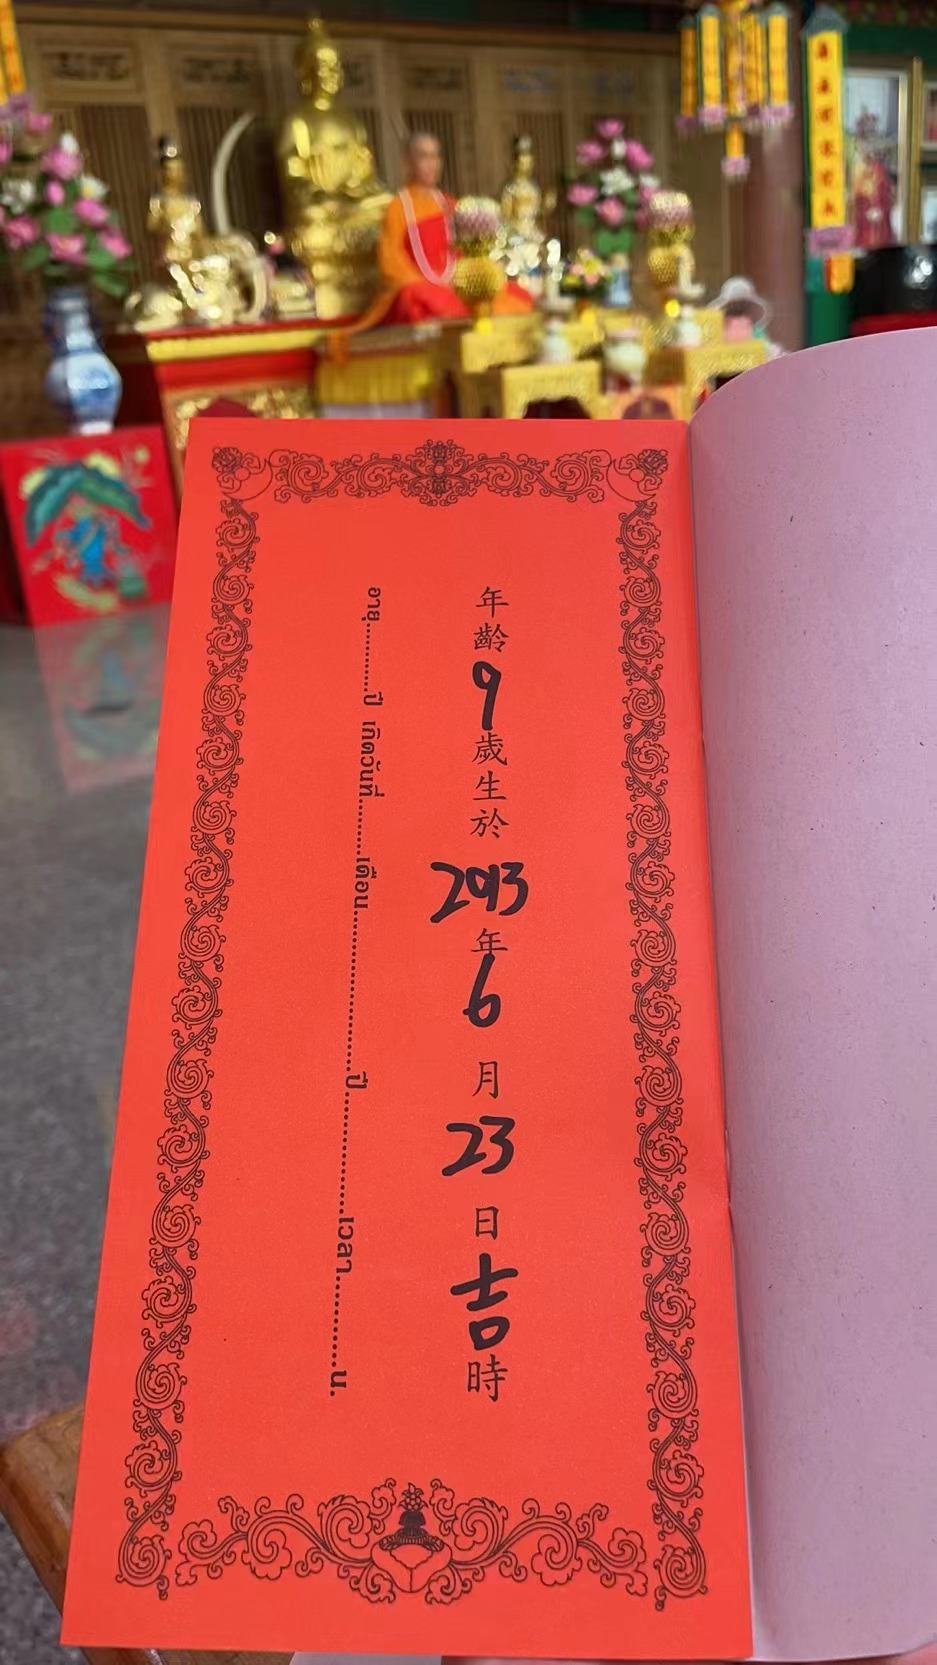 年齡9歲生於2013年6月23日吉時
อายุ............ปี เกิดวันที่............เดือน................................ปี........................เวลา................น.